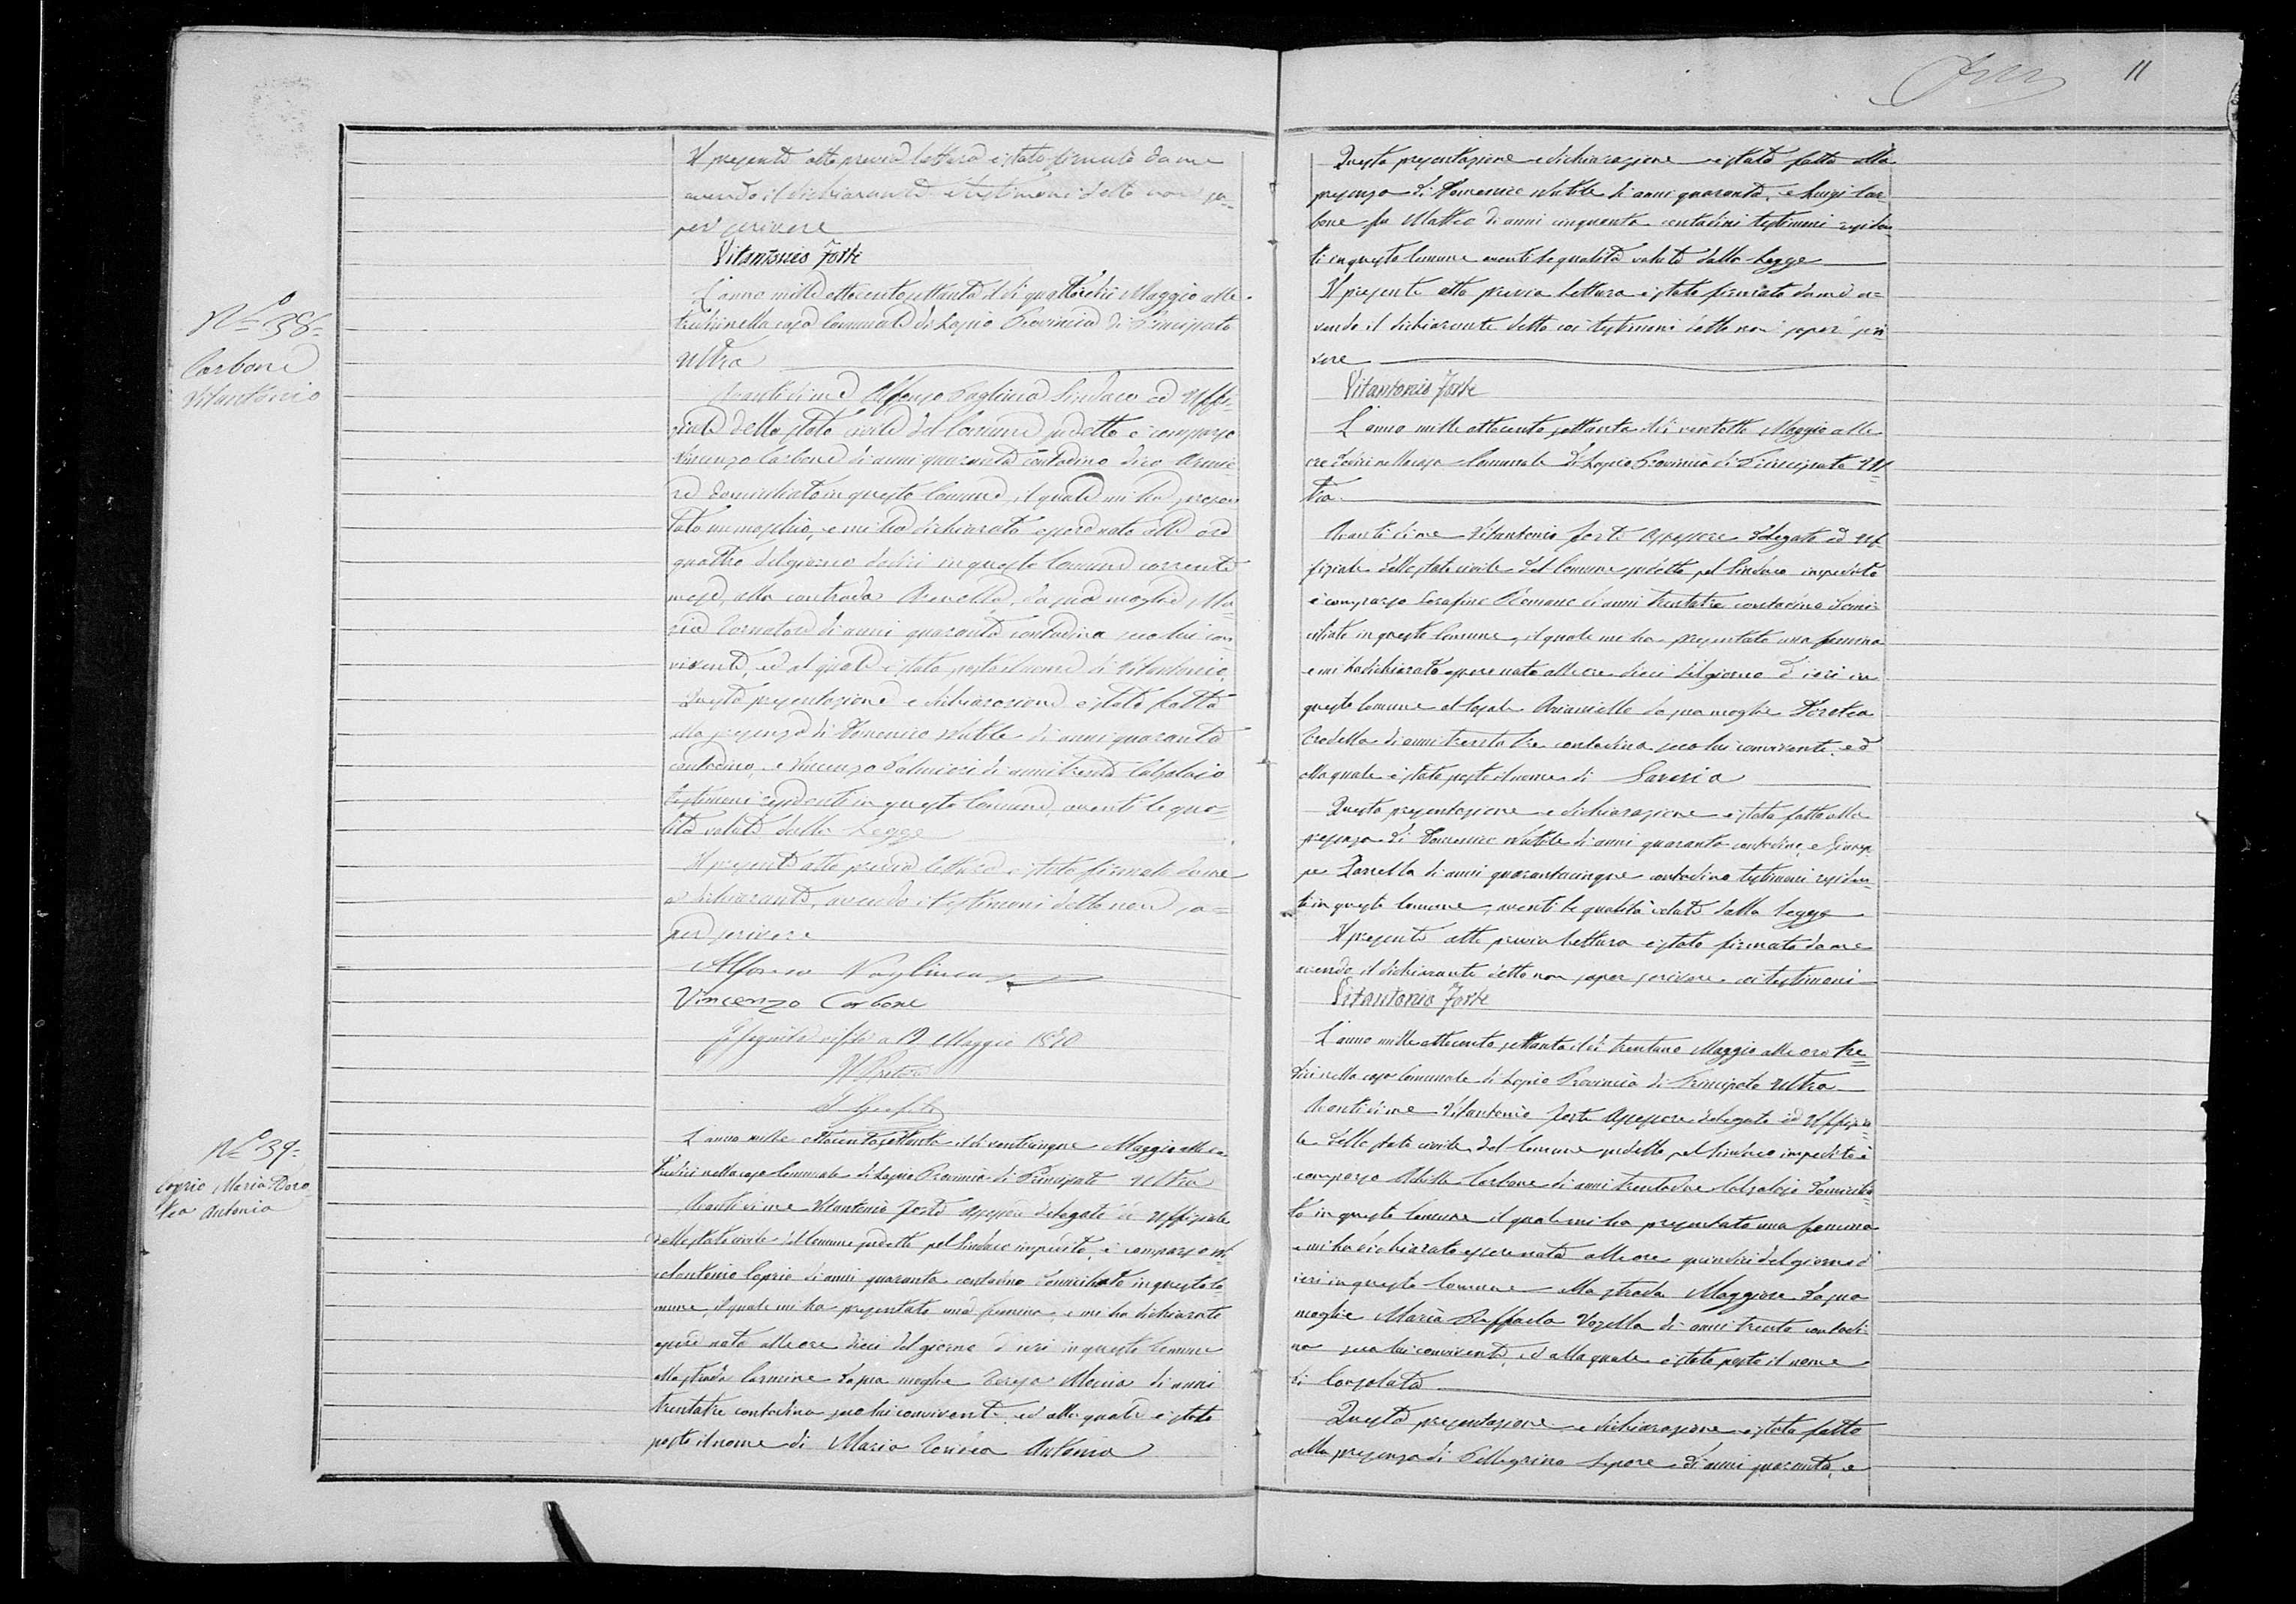 Il presente atto previa lettura è stato firmato da me
avendo il dichiarante e testimoni detto non sa=
per scrivere
Vitantonio Forte
N.º 38=
Carbone
Vitantonio
L'anno mille ottocento settanta il di quattordici Maggio alle
nella casa Comunale di Lapio Provincia di Principato
Ultra
Avanti di me Alfonso Sindaco ed Uffi=
ziale dello stato civile del Comune sudetto è comparso
Vincenzo Carbone di anni quaranta contadino
domiciliato in questo Comune, il quale mi ha presen
tato un maschio, e mi ha dichiarato esser nato alle ore
quattro del giorno dodici in questo Comune corrente
mese, alla contrada Arenella, da sua moglie Ma=
ria Tornatore di anni quaranta contadina seco lui con
vivente, ed al quale è stato posto il nome di Vitantonio.
Questa presentazione e dichiarazione è stata fatta
alla presenza di Domenico Nubile di anni quaranta
contadino, e Vincenzo Palmieri di anni trenta Calzolaio
testimoni residenti in questo Comune, aventi le qua=
lità volute dalla Legge
Il presente atto previa lettura è stato firmato da me
e dichiarante, avendo i testimoni detto non sa=
per scrivere
Alfonso
Vincenzo Carbone
visto a 19 Maggio 1870
Il Pretore
N.º 39=
Caprio Maria Doro
tea Antonia
L'anno mille ottocento settanta il di venticinque Maggio alle ore
tredici nella casa Comunale di Lapio Provincia di Principato Ultra
Avanti di me Vitantonio Forte Assessore delegato ed Uffiziale
dello stato civile del Comune sudetto pel Sindaco impedito, è comparso
Antonio Caprio di anni quaranta contadino domiciliato in questo Co=
mune, il quale mi ha presentato una femina, e mi ha dichiarato
essere nata alle ore dieci del giorno d'ieri in questo Comune
alla strada Carmine da sua moglie Teresa Meccia di anni
trentatre contadina seco lui convivente, ed alla quale è stato
posto il nome di Maria Antonia
11
Questa presentazione e dichiarazione è stata fatta alla
presenza di Domenico Nubile di anni quaranta, e Luigi Car=
bone fu Matteo di anni cinquanta contadini testimoni residen=
ti in questo Comune aventi le qualità volute dalla Legge
Il presente atto previa lettura è stato firmato da me a=
vendo il dichiarante detto coi testimoni detto non saper scri
vere
Vitantonio Forte
L'anno mille ottocento settanta il di ventotto Maggio alle
ore dodici nella casa Comunale di Lapio Provincia di Principato Ul=
tra
Avanti di me Vitantonio Forte Assessore delegato ed Uf=
fiziale dello stato civile del Comune sudetto pel Sindaco impedito
è comparso Serafino Romano di anni trentatre contadino domi=
ciliato in questo Comune, il quale mi ha presentato una femina
e mi ha dichiarato essere nata alle ore dieci del giorno d'ieri in
questo Comune al locale Arianiello da sua moglie Dorotea
di anni trentatre contadina seco lui convivente, ed
alla quale è stato posto il nome di Saveria
Questa presentazione e dichiarazione è stata fatta alla
presenza di Domenico Nubile di anni quaranta contadino, e Giusep
pe Zarrella di anni quarantacinque contadino testimoni residen=
ti in questo Comune, aventi le qualità volute dalla Legge
Il presente atto previa lettura è stato firmato da me
avendo il dichiarante detto non saper scrivere coi testimoni
Vitantonio Forte
L'anno mille ottocento settanta il di trentuno Maggio alle ore tre=
dici nella casa Comunale di Lapio Provincia di Principato Ultra
Avanti di me Vitantonio Forte Assessore delegato ed Uffizia=
le dello stato civile del Comune sudetto pel Sindaco impedito è
comparso Carbone di anni trentadue Calzolaio domicilia=
to in questo Comune il quale mi ha presentato una femina
e mi ha dichiarato essere nata alle ore quindici del giorno d'
ieri in questo Comune alla strada Maggiore da sua
moglie Maria Raffaela Vozella di anni trenta contadi=
na seco lui convivente, ed alla quale è stato posto il nome
di Consolata
Questa presentazione e dichiarazione è stata fatta
alla presenza di Pellegrino Lepore di anni quaranta, e